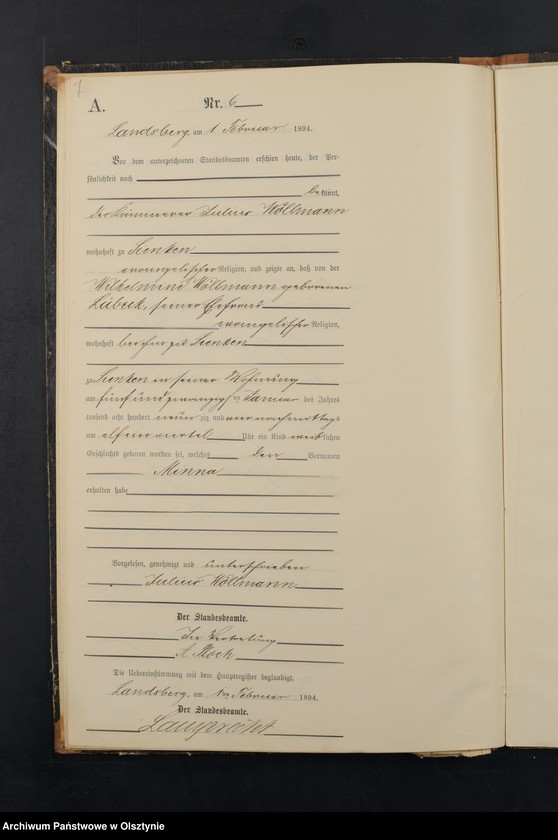 7
A.
Nr. 6
Landsberg, am 1 Februar 1894.
Vor dem unterzeichneten Standesbeamten erschien heute, der Per-
sönlichkeit nach
bekannt,
der Kämmerer Julius Wöllmann
wohnhaft zu Sienken
evangelischer Religion, und zeigte an, daß von der
Wilhelmine Wöllmann geborenen
Lübeck, seiner Ehefrau
evangelischer Religion,
wohnhaft bei ihm zu Sienken
zu Sienken in seiner Wohnung
am fünfundzwanzigsten Januar des Jahres
tausend acht hundert neunzig und vier nachmittags
um elfeinviertel Uhr ein Kind weiblichen
Geschlechts geboren worden sei, welches den Vornamen
Minna
erhalten habe
Vorgelesen, genehmigt und unterschrieben
Julius Wöllmann
Der Standesbeamte.
In Vertretung
A.
Die Uebereinstimmung mit dem Hauptregister beglaubigt.
Landsberg, am 1ten Februar 1894.
Der Standesbeamte.
Archiwum Państwowe w Olsztynie